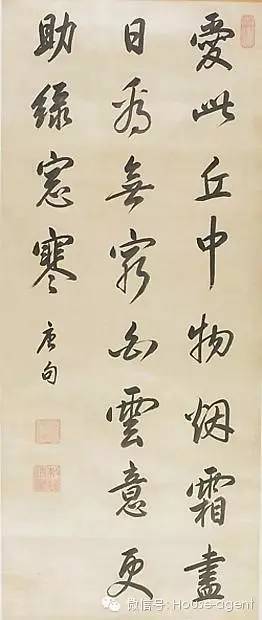 愛此丘中物烟霜盡
日看無窮白雲意更
助綠窓寒
唐句
微信号: House-agent